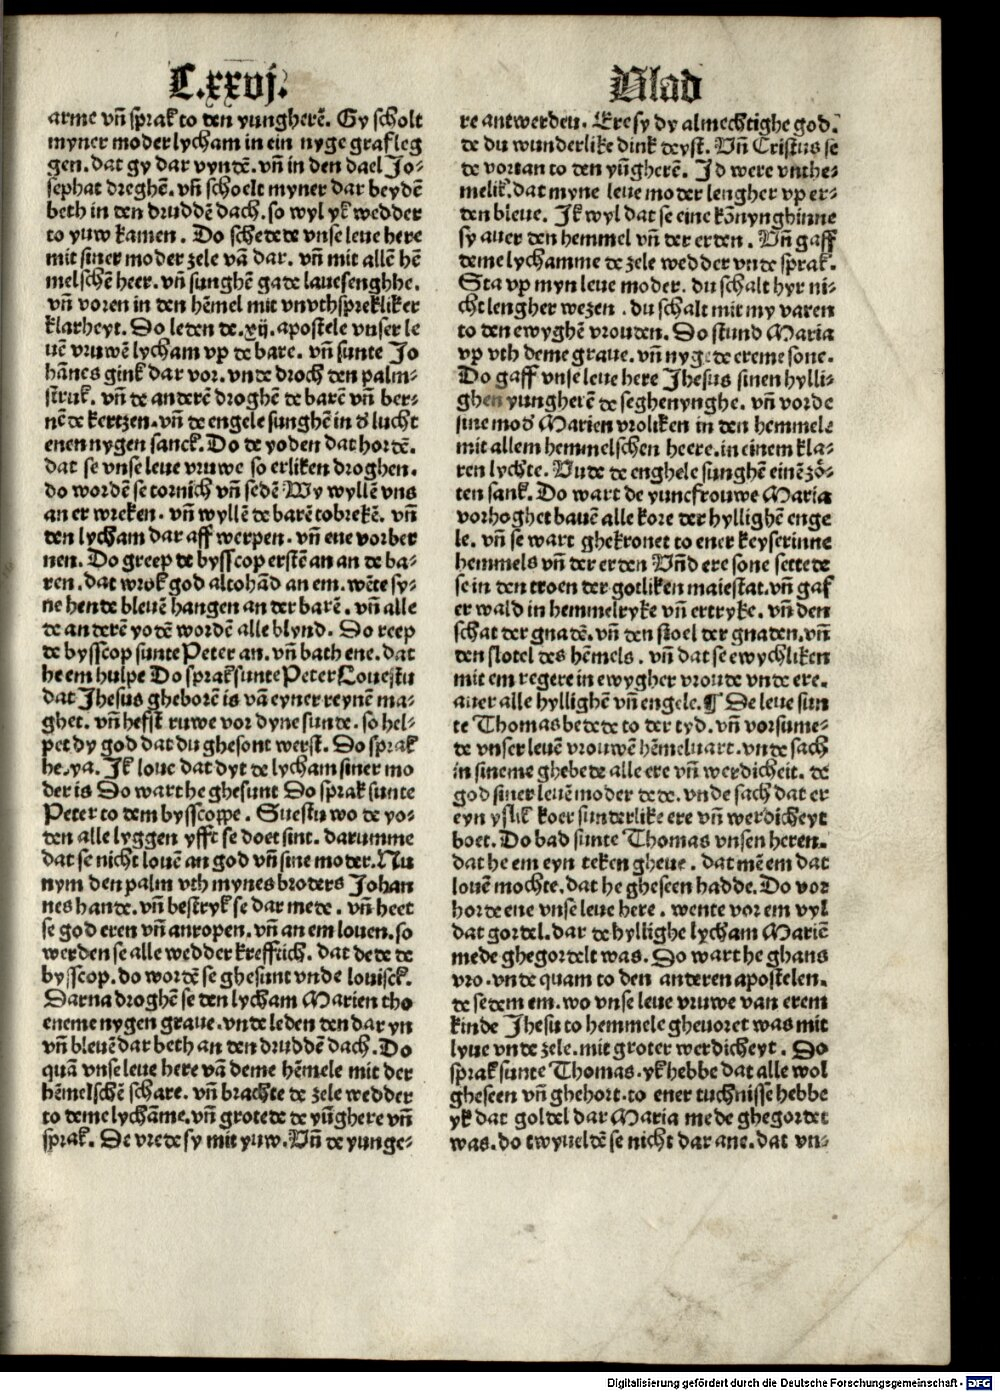 C.xxvj. Blad
arme vñ sprak to den yungherē. Gy scholt
myner moder lycham in ein nyge graf leg
gen. dat gy dar vyndē. vñ in den dael Jo-
sephat dreghē. vñ schoelt myner dar beydē
beth in den druddē dach. so wyl yk wedder
to yuw kamen. Do schedede vnse leue here
mit siner moder zele vā dar. vñ mit allē hē
melschē heer. vñ sunghē gade lauesenghe.
vñ voren in den hēmel mit vnvthsprekliker
klarheyt. Do leden de .xij. apostele vnser le
uē vruwē lycham vp de bare. vñ sunte Jo
hānes gink dar vor. vnde droch den palm-
struk. vñ de anderē droghē de barē vñ ber-
nēde kertzen. vñ de engele sunghē in d' lucht
enen nygen sanck. Do de yoden dat hordē.
dat se vnse leue vruwe so erliken droghen.
do wordē se tornich vñ sedē Wy wyllē vns
an er wreken. vñ wyllē de barē tobrekē. vñ
den lycham dar aff werpen. vñ ene vorber
nen. Do greep de bysscop erstē an an de ba-
ren. dat wrok god altohād an em. wēte sy-
ne hende bleuē hangen an der barē. vñ alle
de anderē yodē wordē alle blynd. Do reep
de bysscop sunte Peter an. vñ bath ene. dat
he em hulpe Do sprak sunte Peter Louestu
dat Jhesus gheborē is vā eyner reynē ma-
ghet. vñ hefft ruwe vor dyne sunde. so hel-
pet dy god dat du ghesont werst. Do sprak
he. ya. Jk loue dat dyt de lycham siner mo
der is Do wart he ghesunt Do sprak sunte
Peter to dem bysscoppe. Suestu wo de yo-
den alle lyggen yfft se doet sint. darumme
dat se nicht louē an god vñ sine moder. Nu
nym den palm vth mynes broders Johan
nes hande. vñ bestryk se dar mede. vñ heet
se god eren vñ anropen. vñ an em louen. so
werden se alle wedder krefftich. dat dede de
bysscop. do wordē se ghesunt vnde louisck.
Darna droghē se den lycham Marien tho
eneme nygen graue. vnde leden den dar yn
vñ bleuē dar beth an den druddē dach. Do
quā vnse leue here vā deme hēmele mit der
hēmelschē schare. vñ brachte de zele wedder
to deme lychāme. vñ grotede de yūghere vñ
sprak. De vrede sy mit yuw. Vñ de yunge-
re antwerden. Ere sy dy almechtighe god.
de du wunderlike dink deyst. Vñ Cristus se
de vortan to den yūgherē. Jd were vnthe-
melik. dat myne leue moder lengher vp er-
den bleue. Jk wyl dat se eine kōnynghinne
sy auer den hemmel vñ der erden. Vñ gaff
deme lychamme de zele wedder vnde sprak.
Sta vp myn leue moder. du schalt hyr ni-
cht lengher wezen. du schalt mit my varen
to den ewyghē vrouden. Do stund Maria
vp vth deme graue. vñ nygede ereme sone.
Do gaff vnse leue here Jhesus sinen hylli-
ghen yungherē de seghenynghe. vñ vorde
sine mod' Marien vroliken in den hemmele
mit allem hemmelschen heere. in einem kla-
ren lychte. Vnde de enghele sunghē einē zō-
ten sank. Do wart de yuncfrouwe Maria
vorhoghet bauē alle kore der hyllighē enge
le. vñ se wart ghekronet to ener keyserinne
hemmels vñ der erden Vñd ere sone settede
se in den troen der gotliken maiestat. vñ gaf
er wald in hemmelryke vñ ertryke. vñ den
schat der gnadē. vñ den stoel der gnaden. vñ
den slotel des hēmels. vñ dat se ewychliken
mit em regere in ewygher vroude vnde ere.
auer alle hyllighē vñ engele. ¶ De leue sun
te Thomas bedede to der tyd. vñ vorsume-
de vnser leuē vrouwē hēmeluart. vnde sach
in sineme ghebede alle ere vñ werdicheit. de
god siner leuē moder dede. vnde sach dat er
eyn yslik koer sunderlike ere vñ werdicheyt
boet. Do bad sunte Thomas vnsen heren.
dat he em eyn teken gheue. dat mē em dat
louē mochte. dat he gheseen hadde. Do vor
horde ene vnse leue here. wente vor em vyl
dat gordel. dar de hyllighe lycham Mariē
mede ghegordelt was. Do wart he ghans
vro. vnde quam to den anderen apostelen.
de sedem em. wo vnse leue vruwe van erem
kinde Jhesu to hemmele gheuoret was mit
lyue vnde zele. mit groter werdicheyt. Do
sprak sunte Thomas. yk hebbe dat alle wol
gheseen vñ ghehort. to ener tuchnisse hebbe
yk dat goldel dar Maria mede ghegordet
was. do twyueldē se nicht dar ane. dat vn-
Digitalisierung gefördert durch die Deutsche Forschungsgemeinschaft - DFG